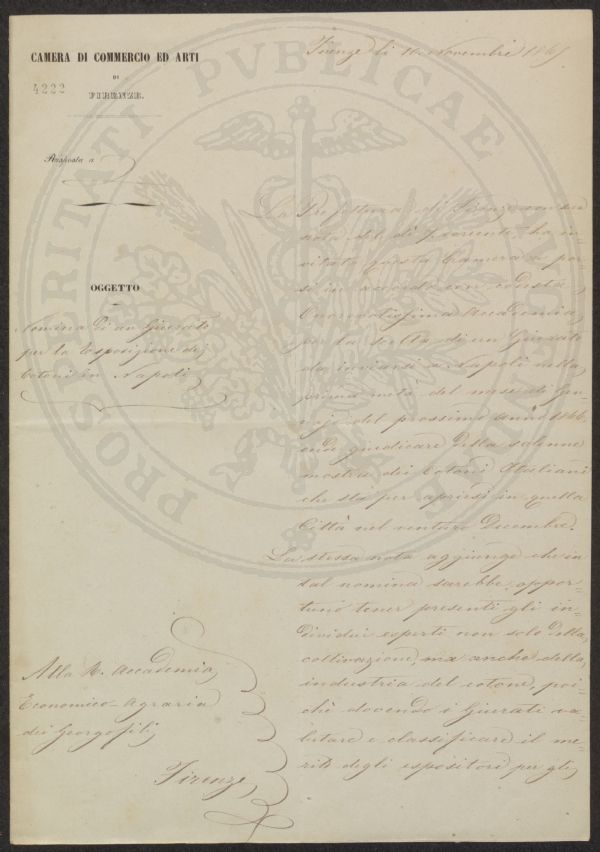 CAMERA DI COMMERCIO ED ARTI
DI
FIRENZE.
4222
Risposta a
OGGETTO
Nomina di un Giurato
per la Esposizione dei
Cotoni in Napoli
Firenze li Novembre 1865
La Prefettura di Firenze con sua
nota del dì presente ha in-
vitato questa Camera a por-
si in accordo con codesta
Onorevolissima Accademia,
per la scelta di un Giurato
da inviarsi a Napoli nella
prima metà del mese di Gen-
najo del prossimo anno 1866.
onde giudicare della solenne
mostra dei Cotoni Italiani
che sta per aprirsi in quella
Città nel venturo Decembre.
La stessa nota aggiunge che in
tal nomina sarebbe oppor-
tuno tener presenti gli in-
dividui esperti non solo della
coltivazione, ma anche della
industria del cotone, poi-
chè dovendo i Giurati va-
lutare e classificare il me-
rito degli espositori per gli
Alla R. Accademia
Economico-Agraria
dei Georgofili
Firenze
PROSPERITATI PVBLICAE AVGENDAE